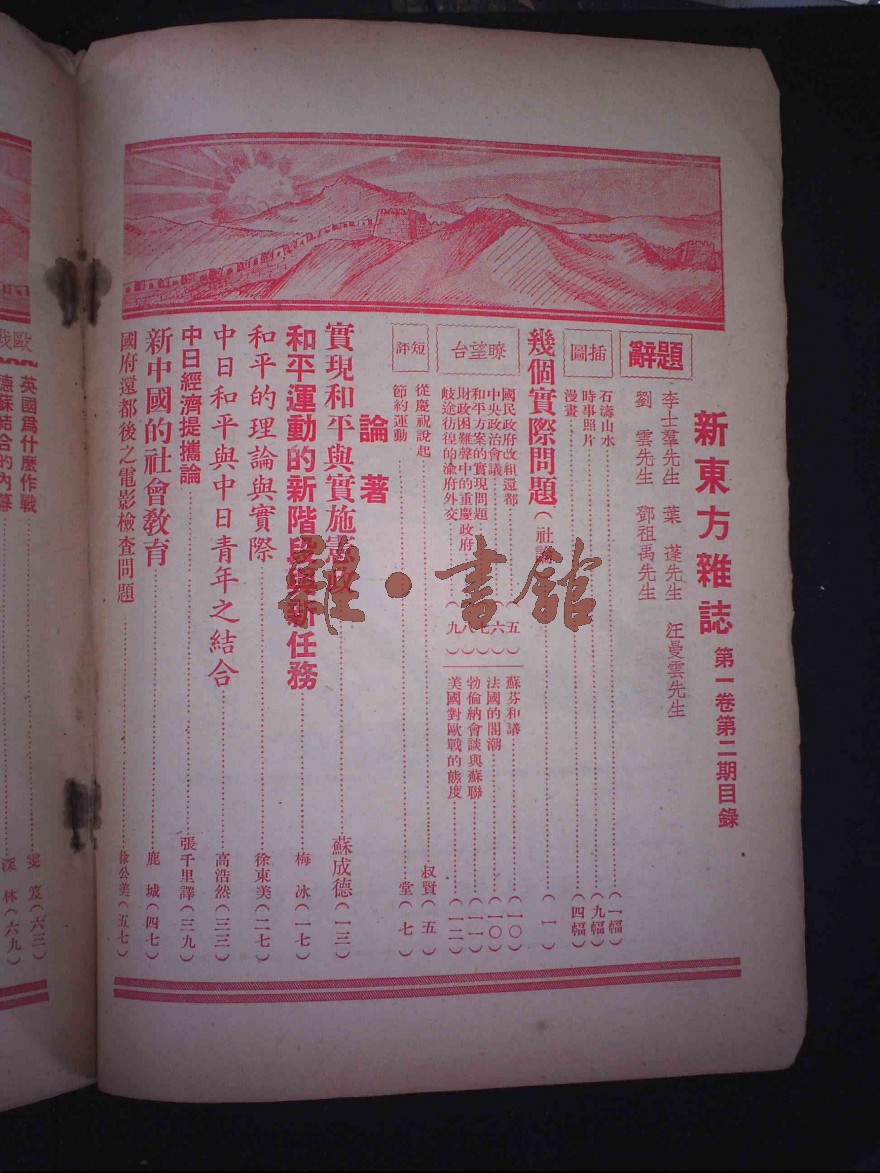 新東方雜誌 第一卷第二期目錄
題辭
李士羣先生 葉蓬先生 汪曼雲先生
劉雲先生 鄧祖禹先生
插圖
石濤山水……(一幅)
時事照片……(九幅)
漫畫……(四幅)
幾個實際問題(社論)……(一)
瞭望台
國民政府改組還都……(五)
中央政治會議……(六)
和平方案的實現問題……(七)
財政困難聲中的重慶政府……(八)
歧途彷徨的渝府外交……(九)
蘇芬和議……(一〇)
法國的閣潮……(一〇)
勃倫納會談與蘇聯……(一一)
美國對歐戰的態度……(一二)
短評
從慶祝說起……叔賢(五)
節約運動……堂(七)
論著
實現和平與實施憲政……蘇成德(一三)
和平運動的新階段與新任務……梅冰(一七)
和平的理論與實際……徐東美(二七)
中日和平與中日青年之結合……高浩然(三三)
中日經濟提攜論……張千里譯(三九)
新中國的社會教育……鹿城(四七)
國府還都後之電影檢查問題……徐公美(五七)
歐戰
英國爲什麼作戰……雯笈(六三)
德蘇結合的內幕……深林(六九)
雜·書館